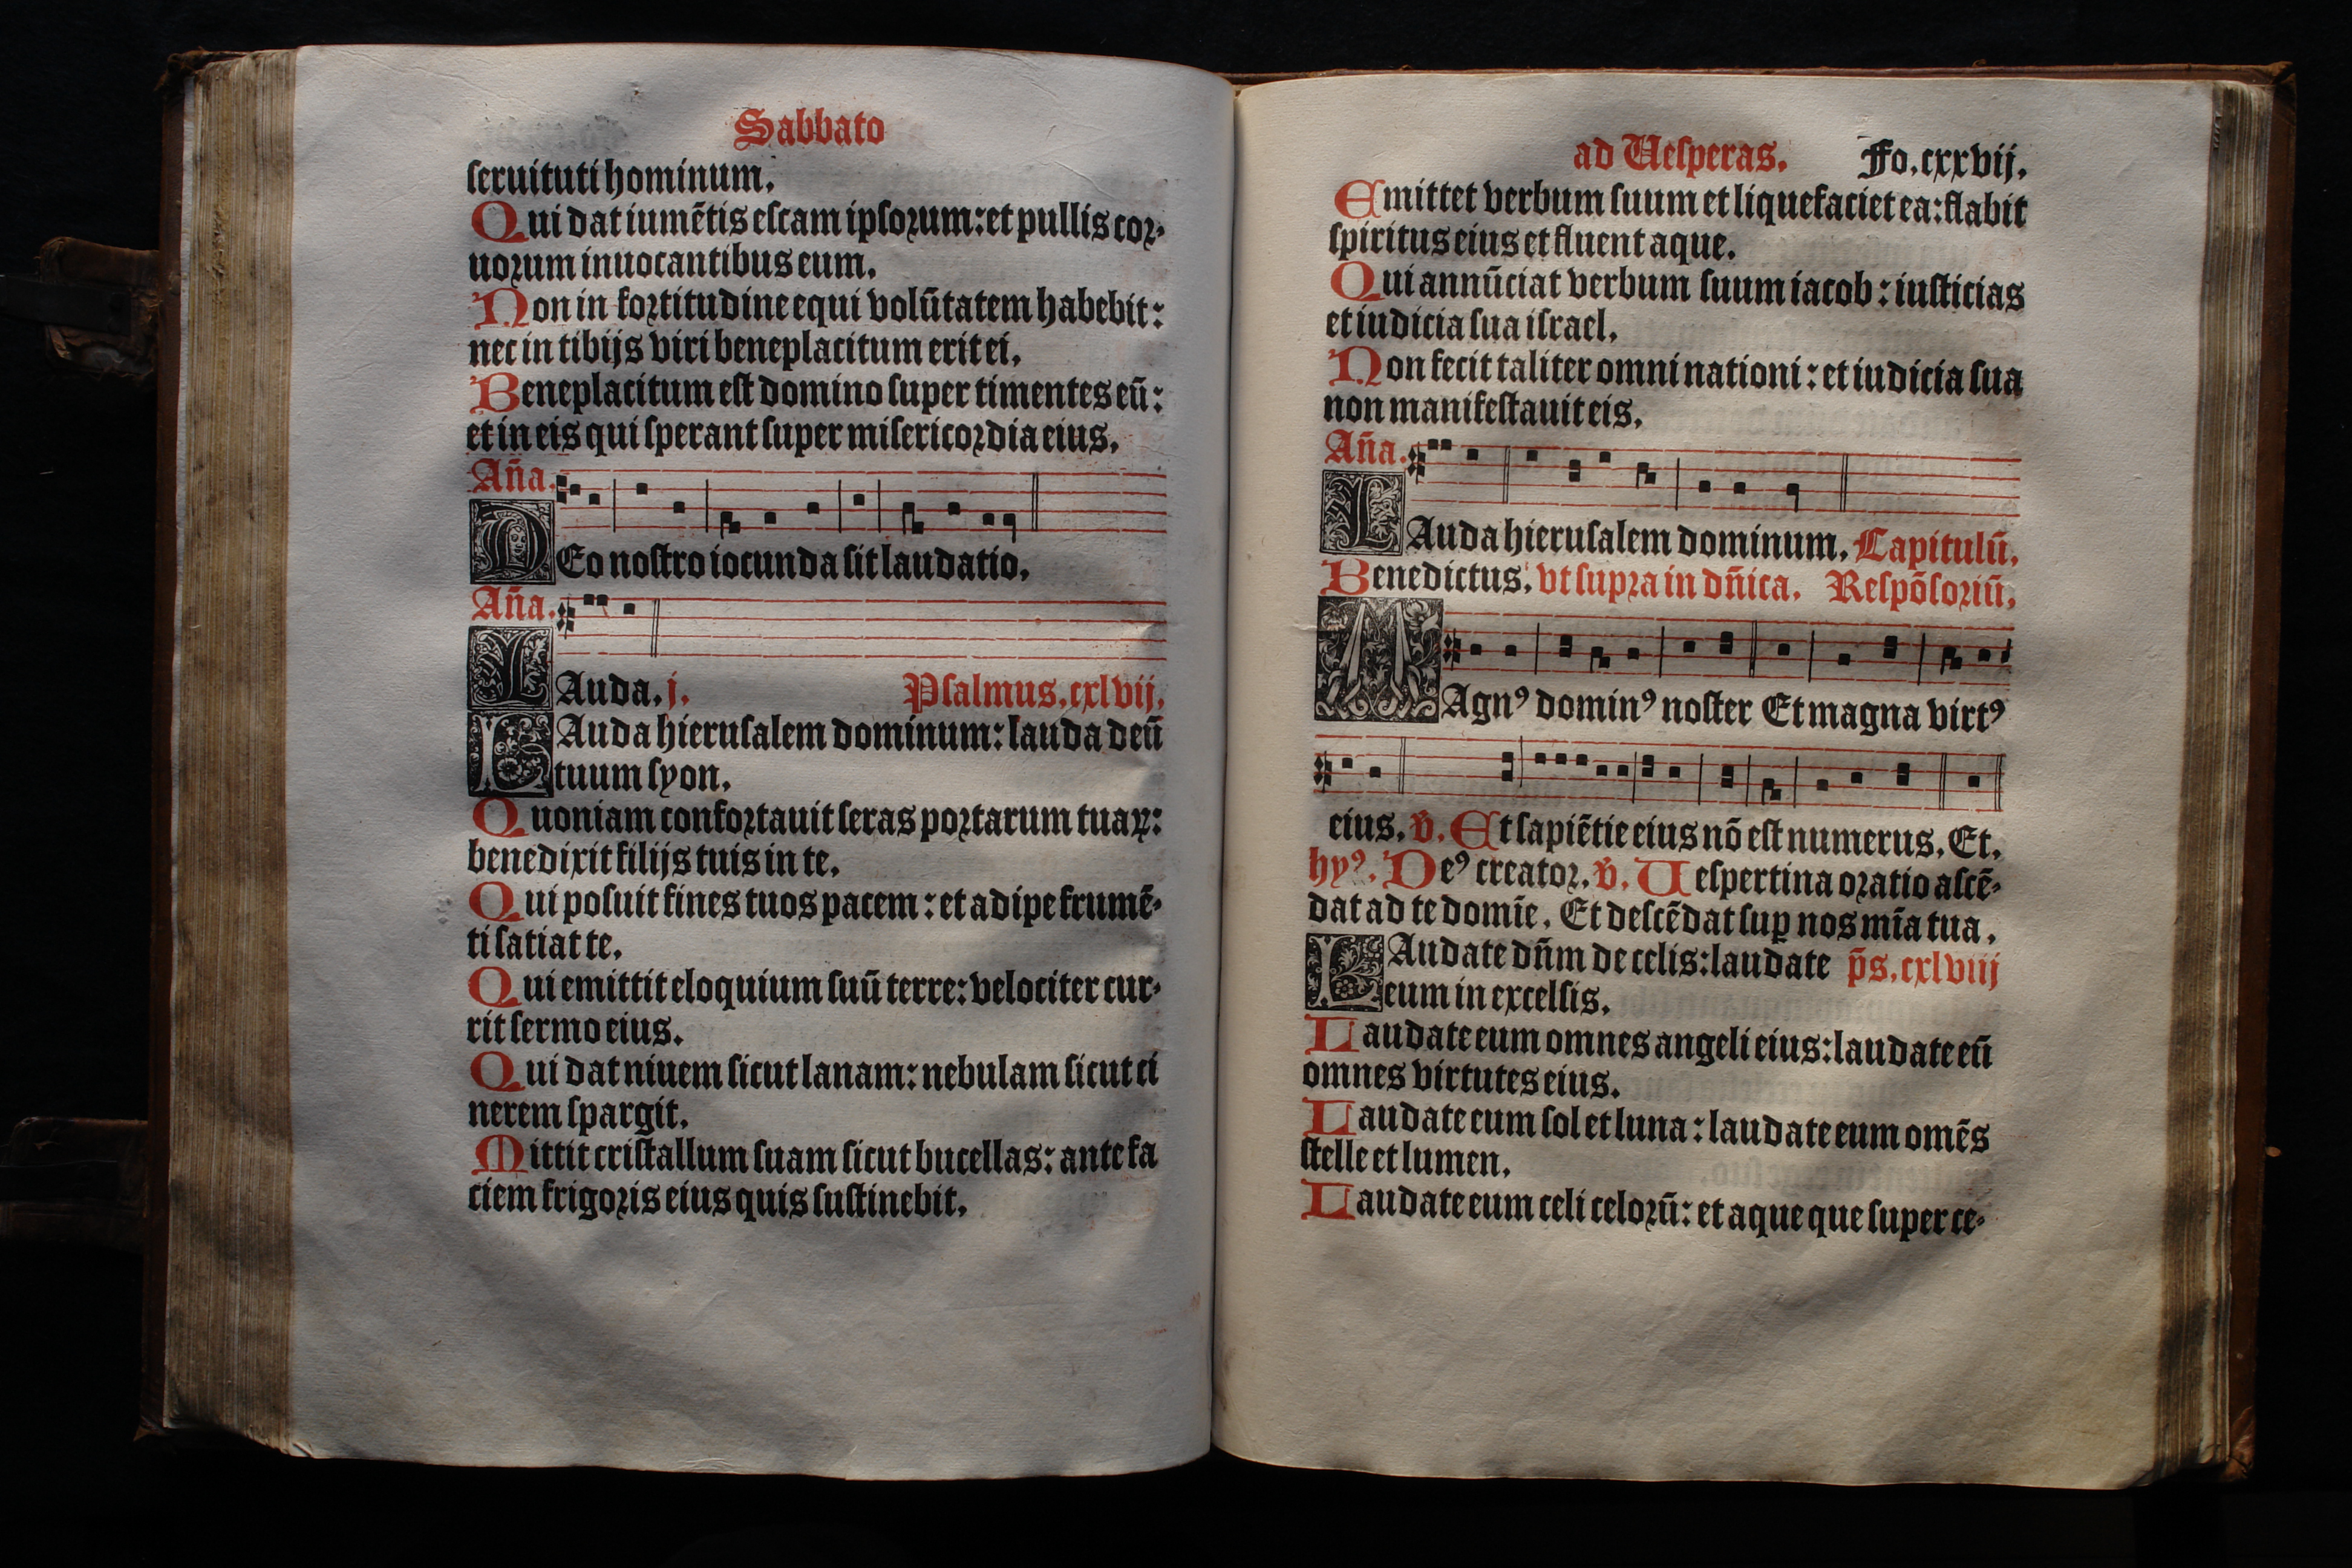 Sabbato
seruituti hominum.
Qui dat iumẽtis escam ipsorum: et pullis cor-
uorum inuocantibus eum.
Non in fortitudine equi volũtatem habebit:
nec in tibijs viri beneplacitum erit ei.
Beneplacitum est domino super timentes eũ:
et in eis qui sperant super misericordia eius.
Aña.
DEo nostro iocunda sit laudatio.
Aña.
LAuda. j. Psalmus. cxlvij.
LAuda hierusalem dominum: lauda deũ
tuum syon.
Quoniam confortauit seras portarum tuaꝝ:
benedixit filijs tuis in te.
Qui posuit fines tuos pacem: et adipe frumẽ-
ti satiat te.
Qui emittit eloquium suũ terre: velociter cur-
rit sermo eius.
Qui dat niuem sicut lanam: nebulam sicut ci
nerem spargit.
Mittit cristallum suam sicut bucellas: ante fa
ciem frigoris eius quis sustinebit.
ad Uesperas. Fo. cxxvij.
Emittet verbum suum et liquefaciet ea: flabit
spiritus eius et fluent aque.
Qui annũciat verbum suum iacob: iusticias
et iudicia sua israel.
Non fecit taliter omni nationi: et iudicia sua
non manifestauit eis.
Aña.
LAuda hierusalem dominum. Capitulũ.
Benedictus. vt supra in dñica. Respõsoriũ.
MAgnꝰ dominꝰ noster Et magna virtꝰ
eius. ℣. Et sapiẽtie eius nõ est numerus. Et.
hyꝰ. Deꝰ creator. ℣. Uespertina oratio ascẽ-
dat ad te domĩe. Et descẽdat suꝑ nos mĩa tua.
LAudate dñm de celis: laudate p̃s. cxlviij
eum in excelsis.
Laudate eum omnes angeli eius: laudate eũ
omnes virtutes eius.
Laudate eum sol et luna: laudate eum omẽs
stelle et lumen.
Laudate eum celi celorũ: et aque que super ce-